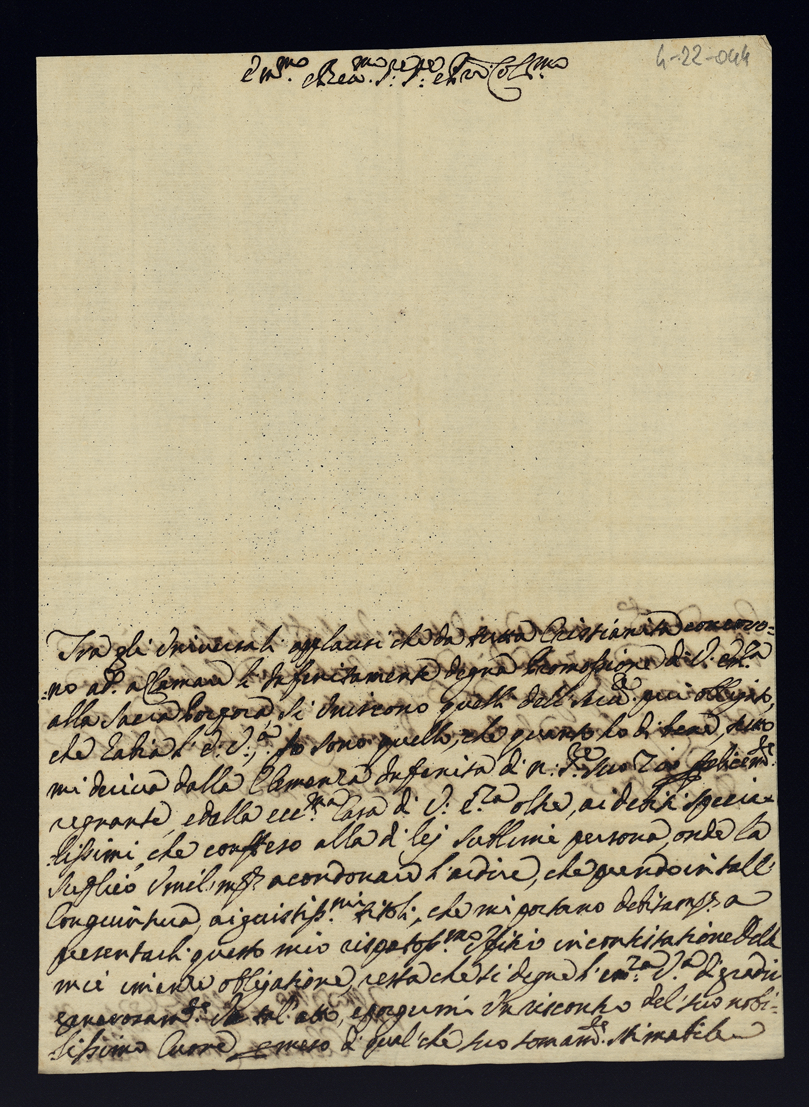 4-22-044
Em.mo e Rev.mo Sig.re P.ne Col.mo
Tra gli universali applausi che da tutta Cristianità concoro=
=no ad acclamare l'infinitamente degna Promossione di V. Em.za
alla Sacra Porpora, si uniscono quelli del più obligato,
che habia l'E. V.a. Io sono quello, che quanto ho di bene, tutto
mi deriva dalla Clemenza infinita di N. S.re suo Zio felicem.te
regnante, e dalla ecc.ma Casa di V. E.za oltre, ai debiti specia=
lissimi, che confesso alla di lei sublime persona, onde la
suplico umil.m.te a condonare l'ardire, che prendo in tall
congiuntura, ai giustiss.mi titoli, che mi portano debitam.te a
presentarli questo mio rispetos.mo Offizio in contestatione delle
mie imense obligatione, resta che si degni l'Em.za V.a di gradir
generosam.te un tal atto, e porgermi un riscontro del suo nobi=
lissimo Cuore per mezo di qualche suo comand.o stimabile